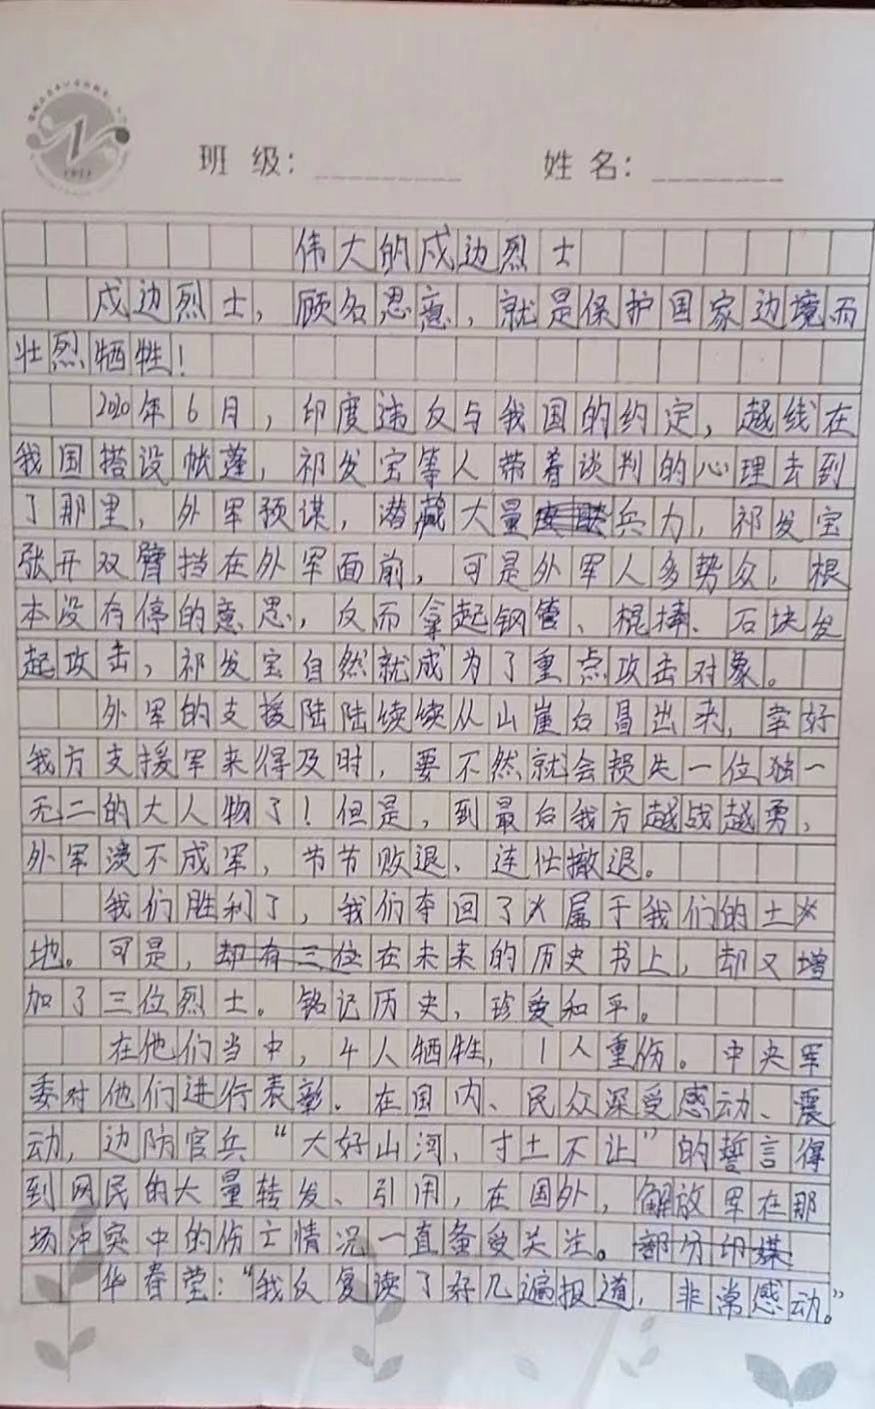 班级：
姓名：
伟大的戍边烈士
戍边烈士，顾名思意，就是保护国家边境而
壮烈牺牲！
2020年6月，印度违反与我国的约定，越线在
我国搭设帐蓬，祁发宝等人带着谈判的心理去到
了那里，外军预谋，潜藏大量兵力，祁发宝
张开双臂挡在外军面前，可是外军人多势众，根
本没有停的意思，反而拿起钢管、棍棒、石块发
起攻击，祁发宝自然就成为了重点攻击对象。
外军的支援陆陆续续从山崖后冒出来，幸好
我方支援军来得及时，要不然就会损失一位独一
无二的大人物了！但是，到最后我方越战越勇，
外军溃不成军，节节败退、连忙撤退。
我们胜利了，我们夺回了属于我们的土
地。可是，却有三位在未来的历史书上，却又增
加了三位烈士。铭记历史，珍爱和平。
在他们当中，4人牺牲，1人重伤。中央军
委对他们进行表彰．在国内、民众深受感动、震
动，边防官兵“大好山河、寸土不让”的誓言得
到网民的大量转发、引用，在国外，解放军在那
场冲突中的伤亡情况一直备受关注。部分印媒
华春莹：“我反复读了好几遍报道，非常感动。”